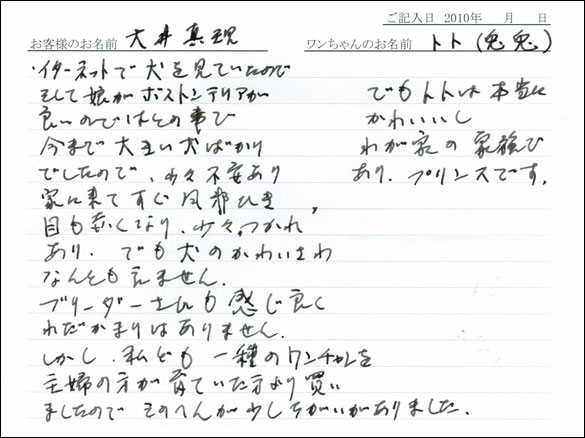 ご記入日 2010年　月　日
お客様のお名前 大井 真現
ワンちゃんのお名前 トト(兎兎)
・インターネットで犬を見ていたので
そして娘がボストンテリアが
良いのではとの事で
今まで大型犬ばかり
でしたので、少々不安あり
家に来てすぐ風邪ひき、
目も赤くなり、少々つかれ
あり、でも犬のかわいさわ
なんとも言えません。
ブリーダーさんも感じ良く
わだかまりはありません。
しかし、私ども一種のワンチャンを
主婦の方が育ていた方より買い
ましたので そのへんが少しちがいがありました。
でもトトは本当に
かわいいし
わが家の家族で
あり、プリンスです。